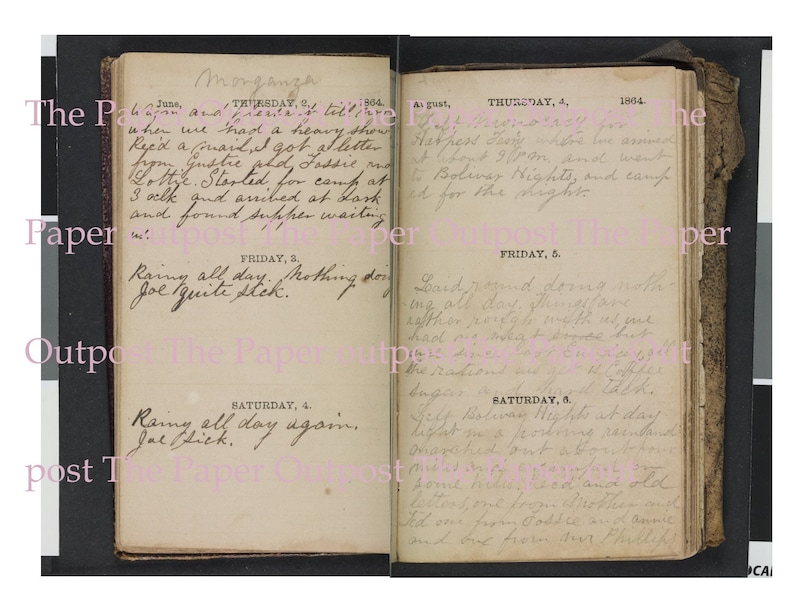 Morganza
June, THURSDAY, 2, 1864.
Warm and pleasant till
when we had a heavy show
Rec'd a mail, I got a letter
from Gustie and Fossie
Lottie. Started for camp at
3 oclk and arrived at dark
and found supper waiting
us.
FRIDAY, 3.
Rainy all day. Nothing doing
Joe quite sick.
SATURDAY, 4.
Rainy all day again.
Joe sick.
August, THURSDAY, 4, 1864.
for
Harpers Ferry where we arrived
at about 9 P.M. and went
to Bolivar Hights, and camp
ed for the night.
FRIDAY, 5.
Laid round doing noth-
ing all day. Things are
rather rough with us, we
had no meat since but
all
the rations we get is Coffee
Sugar and hard tack.
SATURDAY, 6.
Left Bolivar Hights at day
light in a pouring rain and
marched out about four
miles and
some Rec'd and old
letters, one from Mother and
Ed one from Fossie and Annie
and one from Mr Phillips
The Paper Outpost The Paper Outpost The
Paper outpost The Paper Outpost The Paper
Outpost The Paper outpost The Paper Out
post The Paper Outpost The Paper out